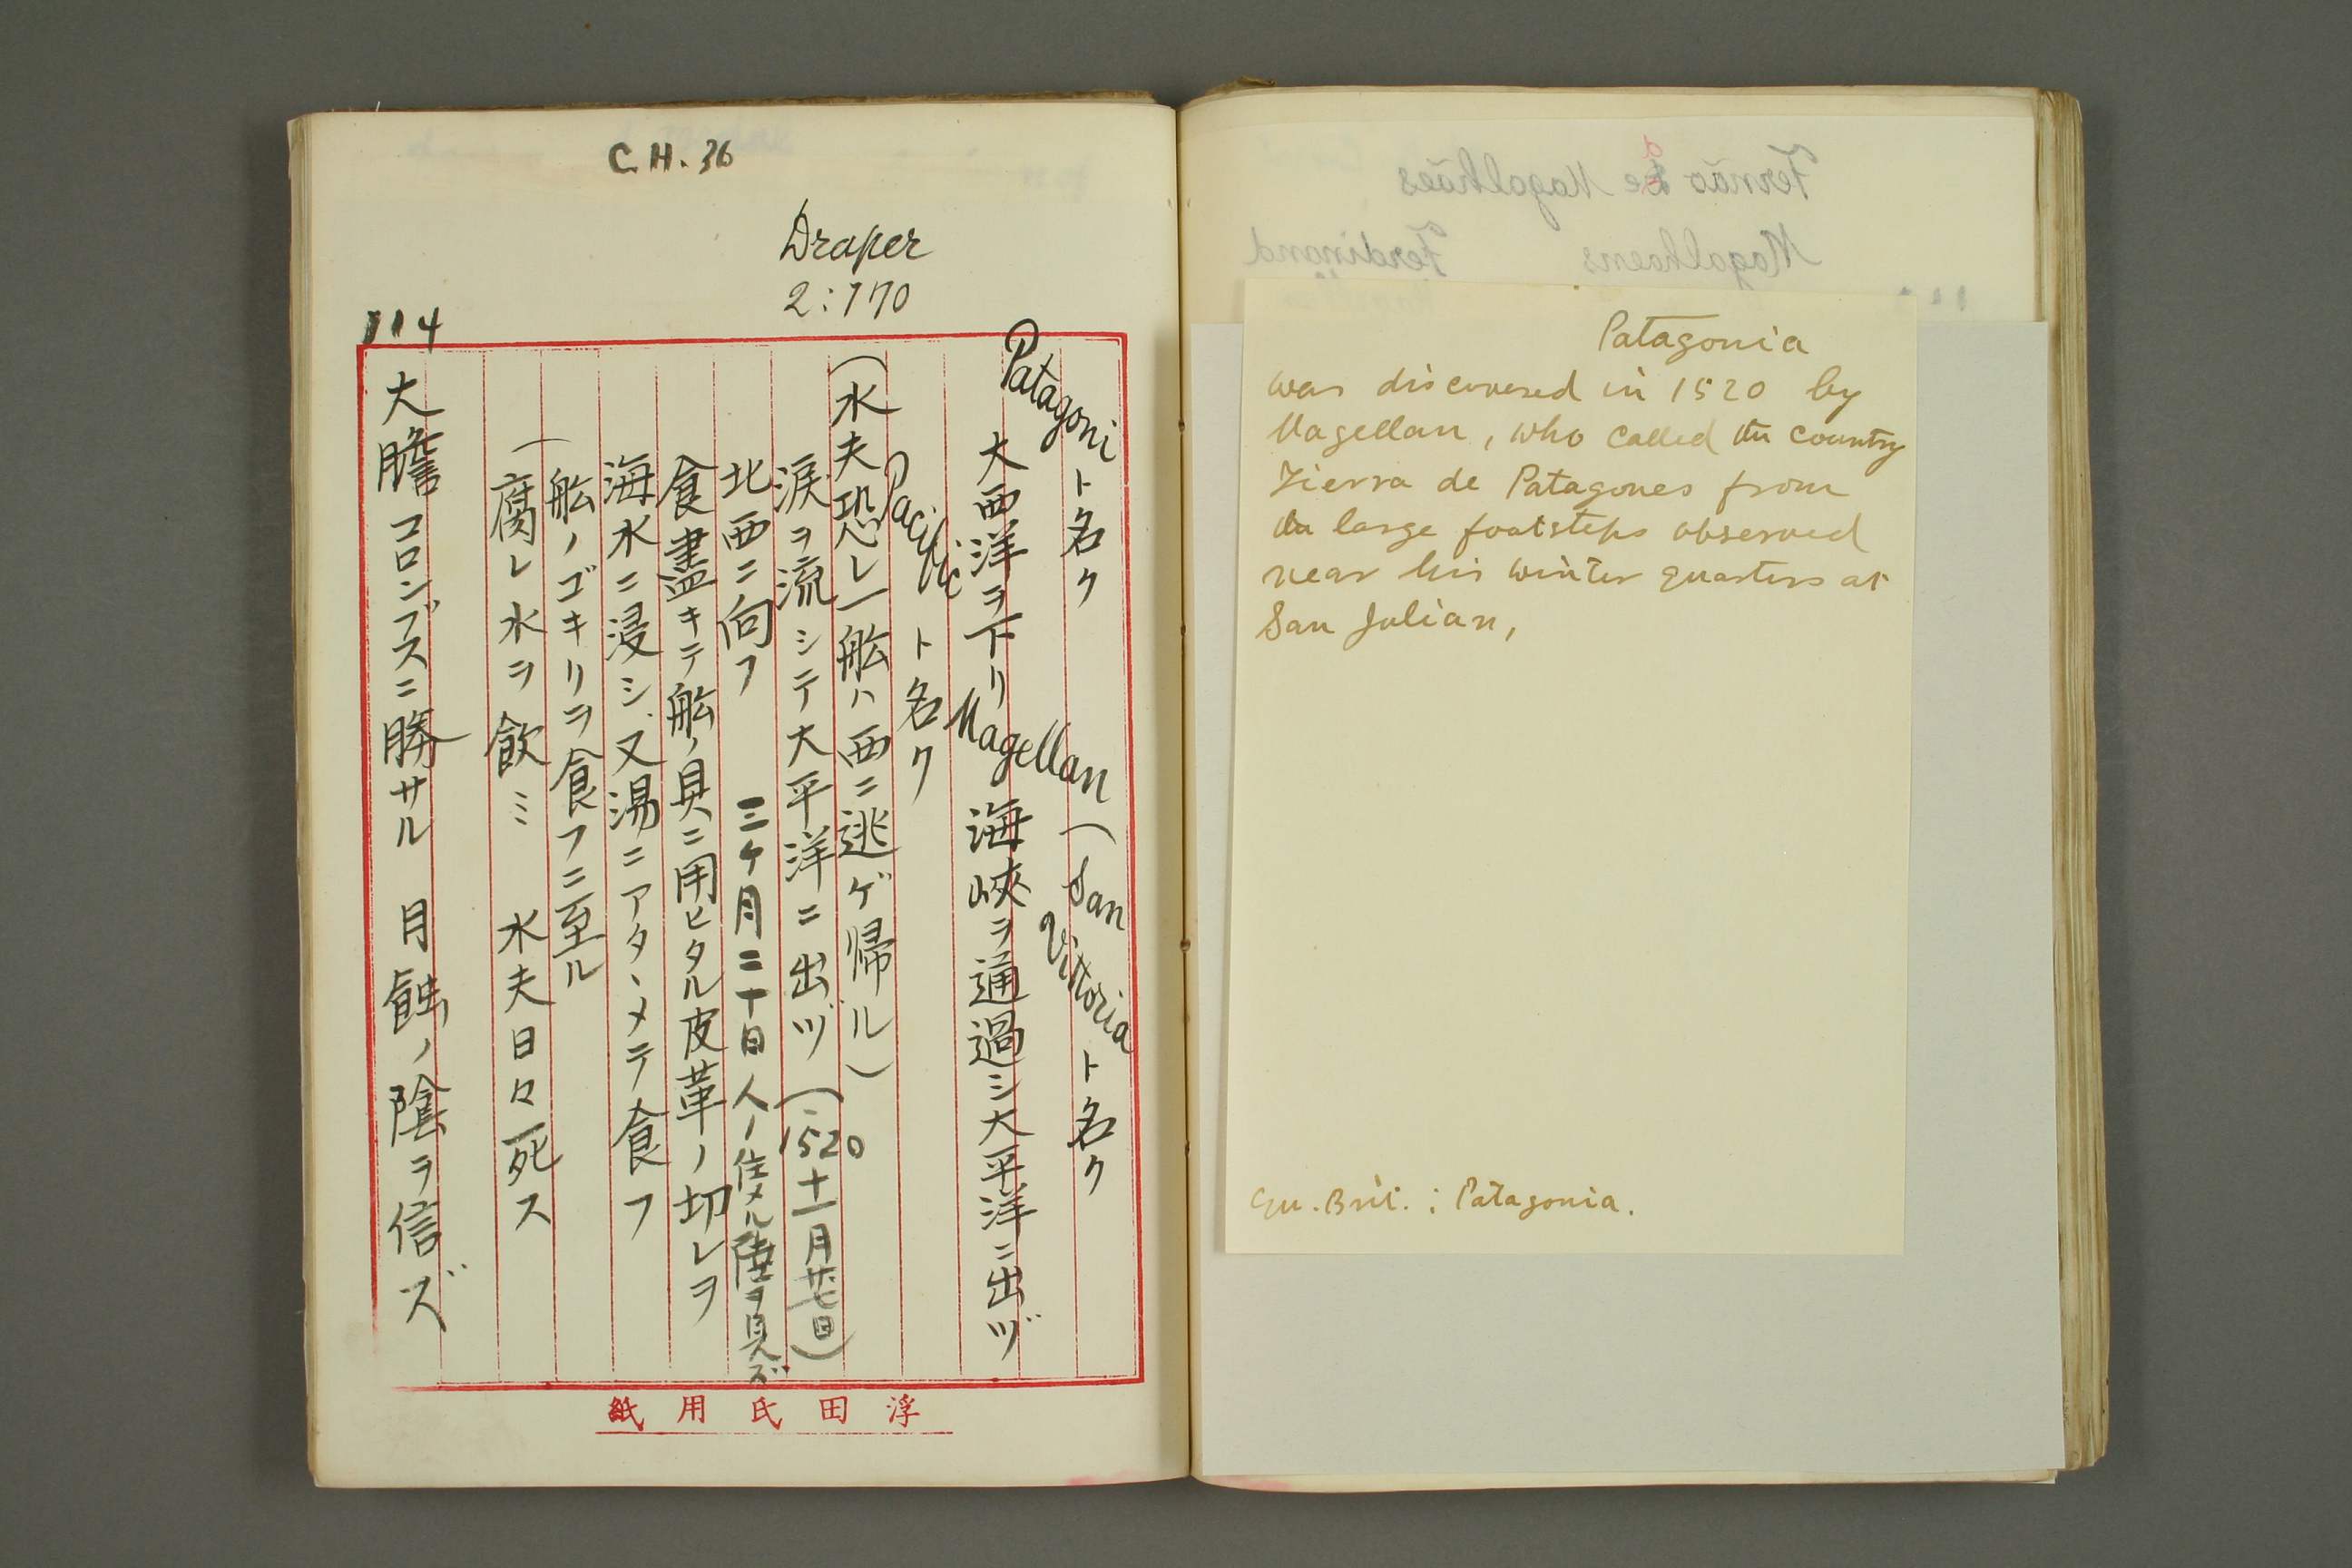 C.H. 36
Draper
2:170
114
Patagoni ト名ク (San Vittoria ト名ク
大西洋ヲ下リ Magellan 海峽ヲ通過シ大平洋ニ出ヅ
Pacific ト名ク
(水夫恐レ一舩ハ西ニ逃ゲ帰ル)
涙ヲ流シテ大平洋ニ出ヅ (1520 十一月廿七日)
北西ニ向フ 三ケ月二十日人ノ住メル陸ヲ見ズ
食盡キテ舩ノ具ニ用ヒタル皮革ノ切レヲ
海水ニ浸シ又湯ニアタヽメテ食フ
舩ノゴキリヲ食フニ至ル
(腐レ水ヲ飲ミ 水夫日々死ス
大膽コロンブスニ勝サル 月蝕ノ陰ヲ信ズ
浮田氏用紙
Fernão de Magalhães
Magalhaens Ferdinand
Patagonia
was discovered in 1520 by
Magellan, who called the country
Tierra de Patagones from
the large footsteps observed
near his winter quarters at
San Julian,
Brit. : Patagonia.